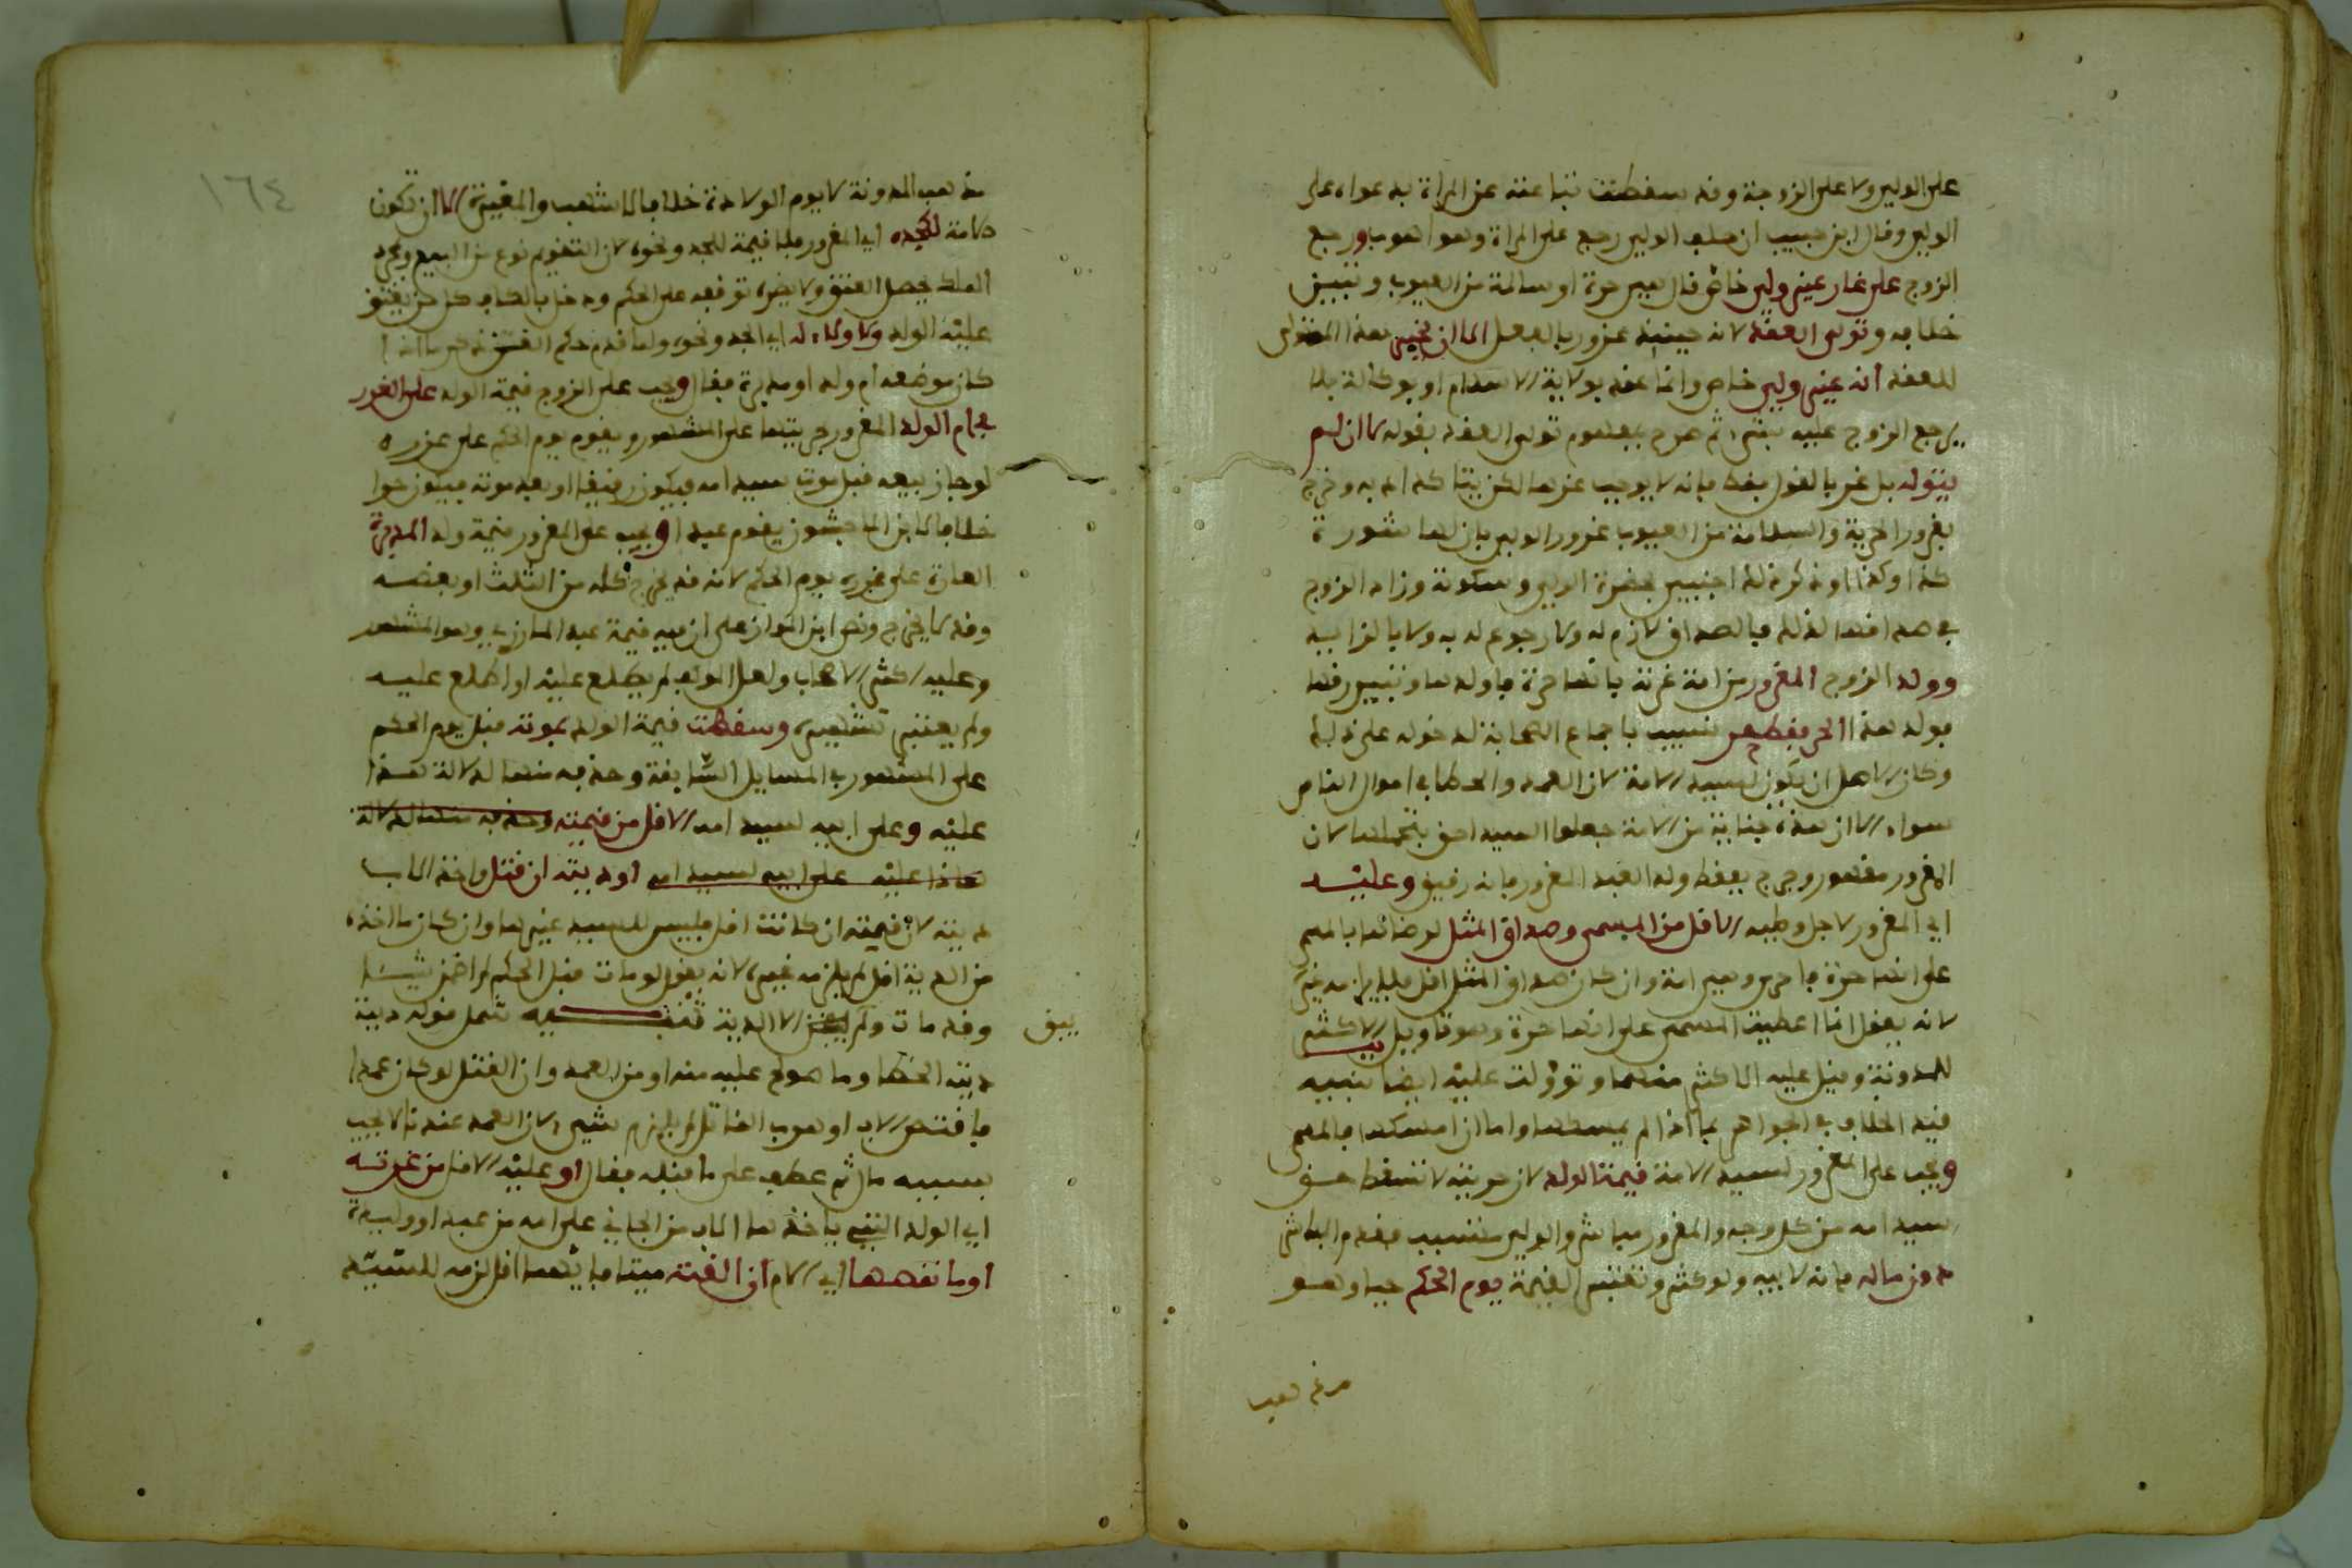 على الولي ولا على الزوجة وقد سقطت تباعته عن المراة بدعواه على
الولي وقال ابن حبيب ان حلف الولي رجع على المراة وهو اصوب ورجع
الزوج على غار غير ولي خاص قال هي حرة او سالمة من العيوب وتبين
خلافه وتولى العقد لانه حينئذ غرور بالفعل الا ان يخبر هذا المتولي
للعقد انه غير ولي خاص وانما عقد بولاية الاسلام او بوكالة بلا
يرجع الزوج عليه بشيء ثم صرح بمفهوم تولى العقد بقوله لا ان لم
يتوله بل غر بالقول فقط فانه لا يوجب غرما لكن يتاكد ادبه وخرج
بغرور الحرية والسلامة من العيوب غرور الولي بان لها شورة
كذا وكذا او ذكر ذلك اجنبي بحضرة الولي وسكوته وزاد الزوج
في صداقها لذلك فالصداق لازم له ولا رجوع له به ولا بالزايد
وولد الزوج المغرور من امة غرته بانها حرة فاولدها وتبين رقها
فولد هذا الحر فقط حر نسيب باجماع الصحابة لدخوله على ذلك
وكان الاصل ان يكون لسيد الامة لان العمد والخطا في اموال الناس
سواء الا ان هذه جناية من الامة جعلوا السيد احق بتحملها لان
المغرور مقهور وخرج بفقط ولد العبد المغرور فانه رقيق وعليه
اي المغرور لاجل وطيه الاقل من المسمى وصداق المثل لرضائها بالمسمى
على انها حرة فاحرى وهي امة وان كان صداق المثل اقل فلا يلزمه غيره
لانه يقول انما اعطيت المسمى على انها حرة وهو تاويل الاكثر
للمدونة وقيل عليه الاكثر منهما وتؤولت عليه ايضا تنبيه
قيد الخلاف في الجواهر بما اذا لم يمسكها واما ان امسكها فالمسمى
ويجب على المغرور لسيد الامة قيمة الولد لان حريته لا تسقط حق
سيد امه من كل وجه والمغرور مباشر والولي متسبب فقدم المباشر
دون ماله فانه لابيه ولو كثر وتعتبر القيمة يوم الحكم حيا وهو
مذهب
١٦٤
مذهب المدونة لا يوم الولادة خلافا لاشهب والمغيرة الا ان تكون
الامة لكجده اي المغرور فلا قيمة للجد ونحوه لان التقويم نوع من البيع وبمجرد
الملك يحصل العتق ولا يضره توقفه على الحكم ودخل بالكاف كل من يعتق
عليه الولد ولا ولاء له اي الجد ونحوه ولما قدم حكم القن ذكر ما اذا
كان موضعه ام ولد او مدبرة فقال ويجب على الزوج قيمة الولد على الغرر
في ام الولد المغرور بحريتها على المشهور ويقوم يوم الحكم على غرره
لو جاز بيعه قبل موت سيد امه فيكون رقيقا او بعد موته فيكون حرا
خلافا لابن الماجشون يقوم عبدا ويجب على المغرور قيمة ولد المدبرة
الغارة على غرره يوم الحكم لانه قد يخرج كله من الثلث او بعضه
وقد لا يخرج ونص ابن المواز على ان فيه قيمة عبد المازري وهو المشهور
وعليه اكثر الاصحاب ولعل المولف لم يطلع عليه او اطلع عليه
ولم يعتبر تشهيره وسقطت قيمة الولد بموته قبل يوم الحكم
على المشهور في المسايل السابقة وحذفه منها لدلالة هذا
عليه وعلى ابيه لسيد امه الاقل من قيمته وحذفه منها لدلالة
هاذا عليه على ابيه لسيد امه او ديته ان قتل واخذ الاب
ديته لان قيمته ان كانت اقل فليس للسيد غيرها وان كان ما اخذه
من الدية اقل لم يلزمه غيره لانه يقول لو مات قبل الحكم لم اضمن شيئا
وقد مات ولم يبق الا الدية تنبيه شمل قوله دية
يبق
دية الخطا وما صولح عليه منه او من العمد وان القتل لو كان عمدا
فاقتص الاب او هرب القاتل لم يلزم شيء لان العمد عندنا لا يجب
بسببه مال ثم عطف على ما قبله فقال او عليه الاقل من غرته
اي الولد التي ياخذها الاب من الجاني على امه من عبد او وليدة
او ما نقصها اي الام ان القته ميتا فايهما اقل لزمه للسيد